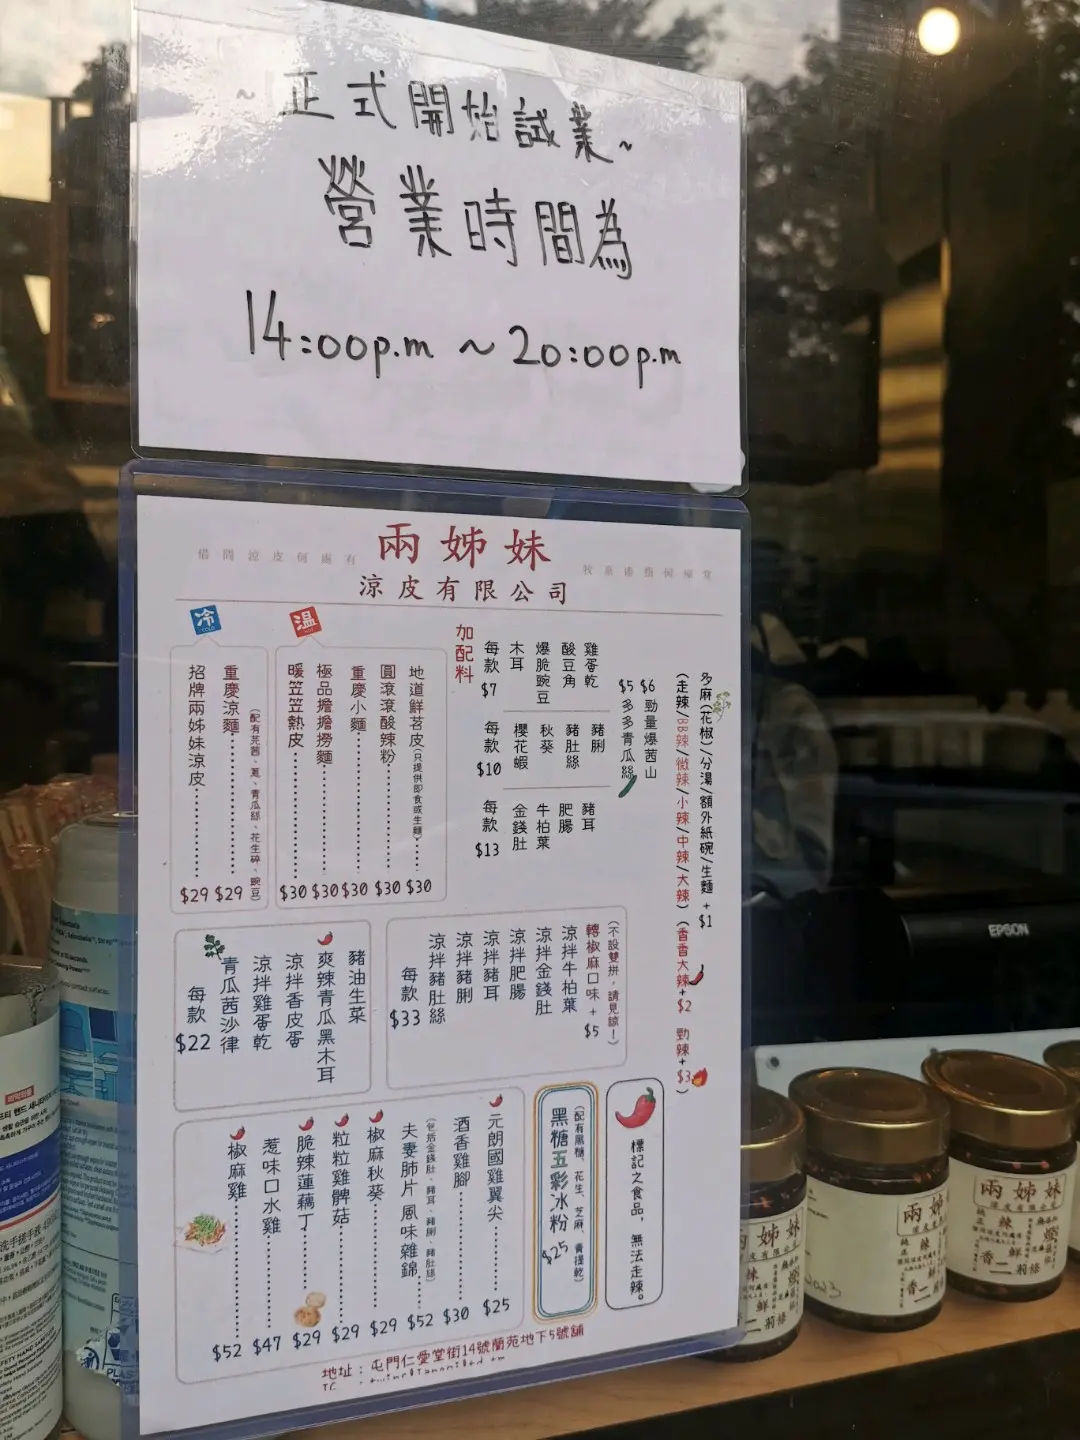 ~正式開始試業~
營業時間為
14:00p.m ~ 20:00p.m
兩姊妹
涼皮有限公司
借問涼皮何處有
冷
COLD
招牌兩姊妹涼皮 $29
重慶涼麵 $29
(配有芫茜、蔥、青瓜絲、花生碎、豌豆)
温
暖笠笠熱皮 $30
極品擔擔撈麵 $30
重慶小麵 $30
圓滾滾酸辣粉 $30
地道鮮苕皮(只提供即食或生麵) $30
加配料
每款 $7
木耳
爆脆豌豆
酸豆角
雞蛋乾
每款 $10
櫻花蝦
秋葵
豬肚絲
豬脷
每款 $13
金錢肚
牛柏葉
肥腸
豬耳
$5 多多青瓜絲
$6 勁量爆茜山
多麻(花椒)/分湯/額外紙碗/生麵 +$1
(走辣/BB辣/微辣/小辣/中辣/大辣)(香香大辣+$2 勁辣+$3)
每款 $22
青瓜茜沙律
涼拌雞蛋乾
涼拌香皮蛋
爽辣青瓜黑木耳
豬油生菜
每款 $33
涼拌豬肚絲
涼拌豬脷
涼拌豬耳
涼拌肥腸
涼拌金錢肚
涼拌牛柏葉
轉椒麻口味+$5
(不設雙拼，請見諒！)
椒麻雞 $52
惹味口水雞 $47
脆辣蓮藕丁 $29
粒粒雞髀菇 $29
椒麻秋葵 $29
夫妻肺片風味雜錦 $52
(包括金錢肚、豬耳、豬脷、豬肚絲)
酒香雞腳 $30
元朗國雞翼尖 $25
黑糖五彩冰粉 $25
(配有黑糖、花生、芝麻、青提乾)
標記之食品，無法走辣。
地址：屯門仁愛堂街14號蘭苑地下5號舖
EPSON
兩姊妹
兩姊妹